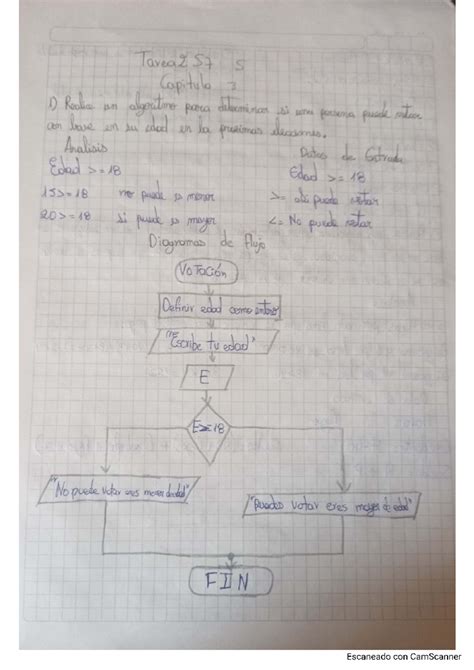 Tarea 2 S7 5
Capitulo 3
1) Realice un algoritmo para determinar si una persona puede votar
con base en su edad en la proximas elecciones.
Analisis
Datos de Entrada
Edad >= 18
Edad >= 18
15>=18 no puede es menor
>= puede votar
20>=18 si puede es mayor
<= No puede votar
Diagramas de Flujo
Votación
Definir edad como entero
"Escribe tu edad"
E
E>=18
"No puede votar eres menor de edad"
"Puedes votar eres mayor de edad"
FIN
Escaneado con CamScanner